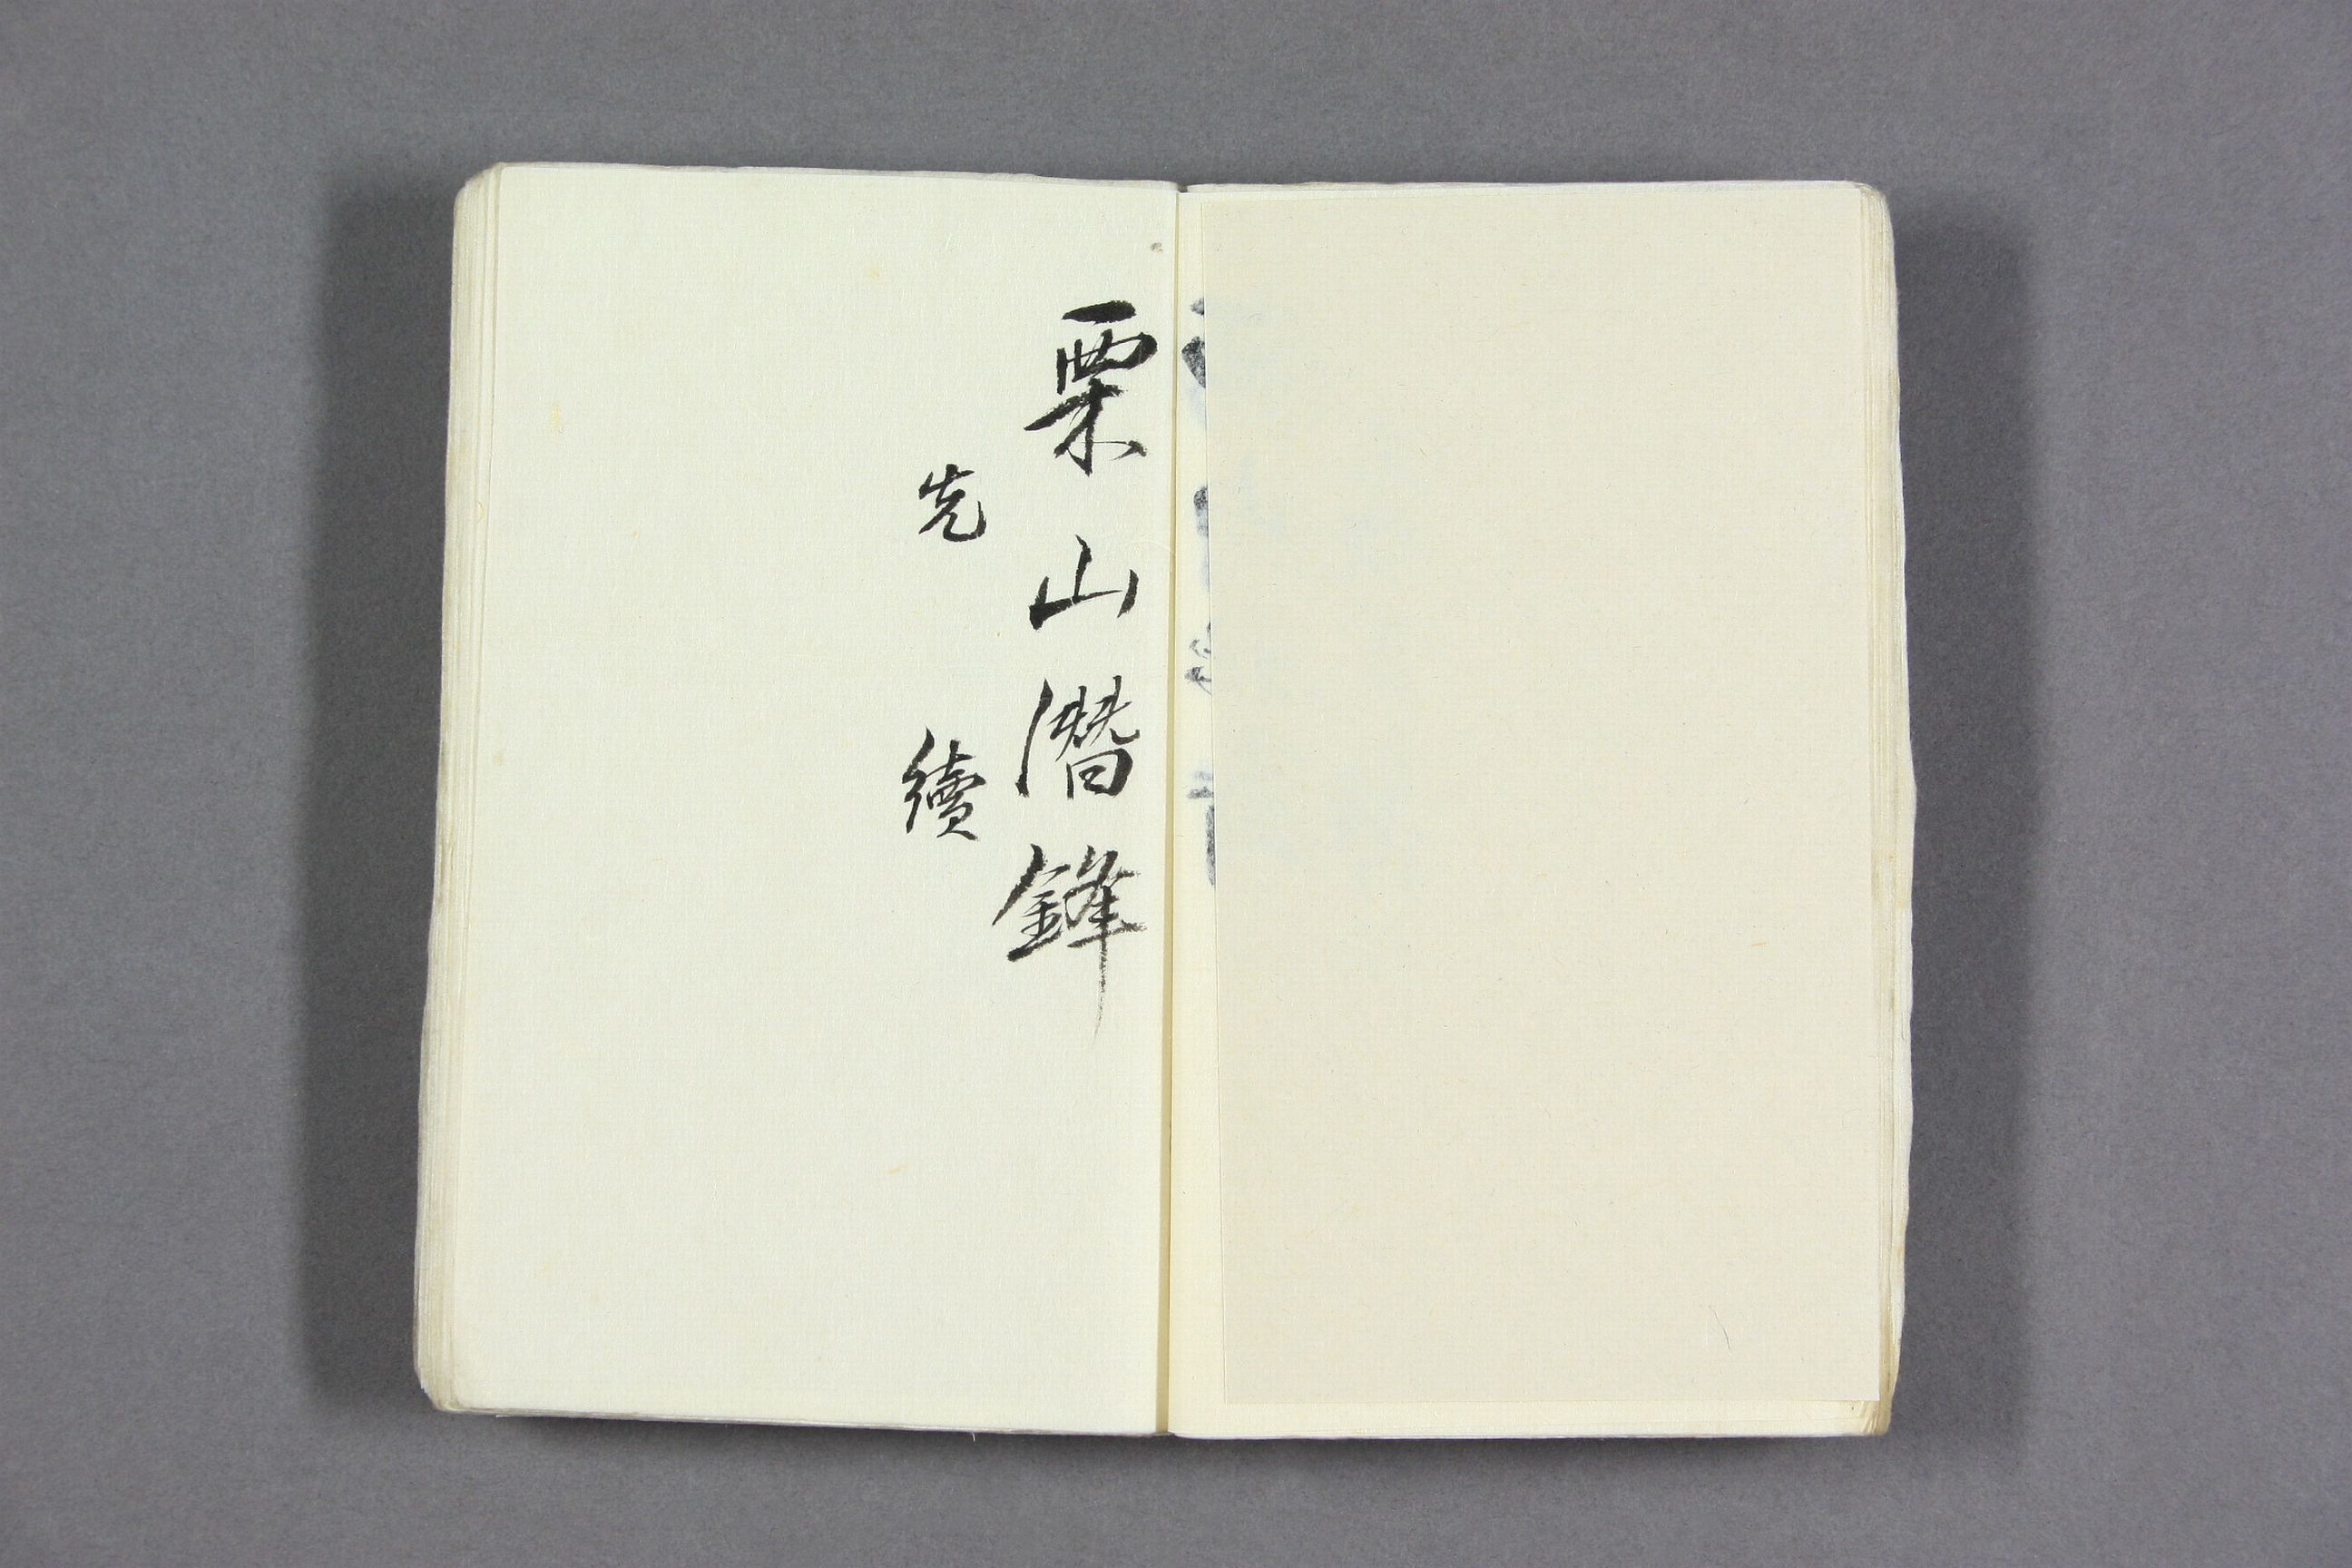 栗山潛鋒
先 續